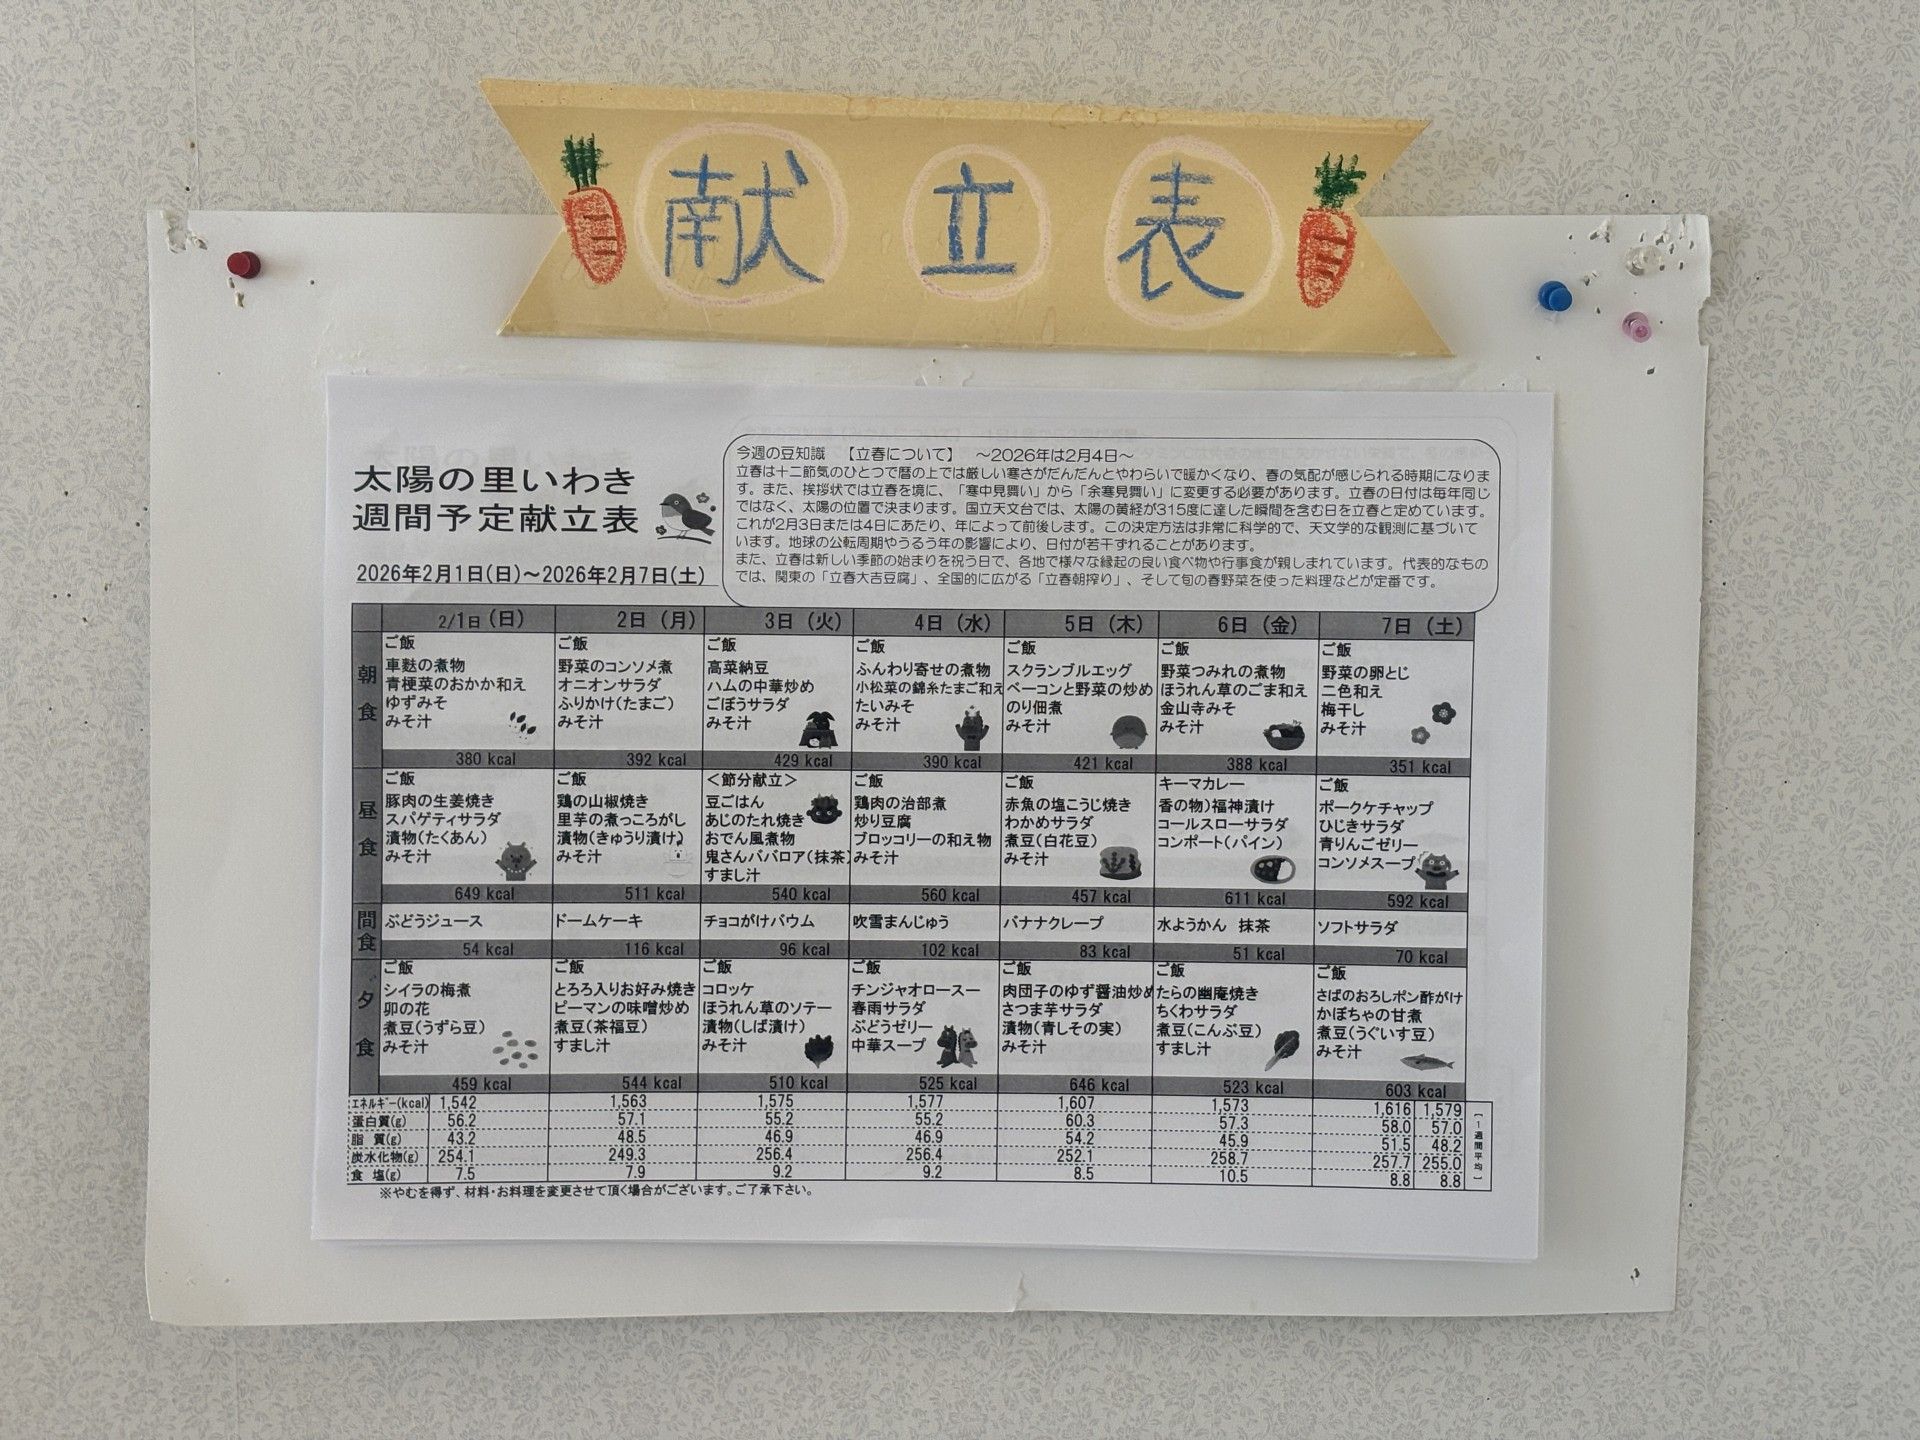 献立表
太陽の里いわき
週間予定献立表
2026年2月1日(日)～2026年2月7日(土)
今週の豆知識　【立春について】　～2026年は2月4日～
立春は十二節気のひとつで暦の上では厳しい寒さがだんだんとやわらいで暖かくなり、春の気配が感じられる時期になりま
す。また、挨拶状では立春を境に、「寒中見舞い」から「余寒見舞い」に変更する必要があります。立春の日付は毎年同じ
ではなく、太陽の位置で決まります。国立天文台では、太陽の黄経が315度に達した瞬間を含む日を立春と定めています。
これが2月3日または4日にあたり、年によって前後します。この決定方法は非常に科学的で、天文学的な観測に基づいて
います。地球の公転周期やうるう年の影響により、日付が若干ずれることがあります。
また、立春は新しい季節の始まりを祝う日で、各地で様々な縁起の良い食べ物や行事食が親しまれています。代表的なもの
では、関東の「立春大吉豆腐」、全国的に広がる「立春朝搾り」、そして旬の春野菜を使った料理などが定番です。
2/1日（日） 2日（月） 3日（火） 4日（水） 5日（木） 6日（金） 7日（土）
朝食
ご飯
車麩の煮物
青梗菜のおかか和え
ゆずみそ
みそ汁
380 kcal
ご飯
野菜のコンソメ煮
オニオンサラダ
ふりかけ(たまご)
みそ汁
392 kcal
ご飯
高菜納豆
ハムの中華炒め
ごぼうサラダ
みそ汁
429 kcal
ご飯
ふんわり寄せの煮物
小松菜の錦糸たまご和え
たいみそ
みそ汁
390 kcal
ご飯
スクランブルエッグ
ベーコンと野菜の炒め
のり佃煮
みそ汁
421 kcal
ご飯
野菜つみれの煮物
ほうれん草のごま和え
金山寺みそ
みそ汁
388 kcal
ご飯
野菜の卵とじ
二色和え
梅干し
みそ汁
351 kcal
昼食
ご飯
豚肉の生姜焼き
スパゲティサラダ
漬物(たくあん)
みそ汁
649 kcal
ご飯
鶏の山椒焼き
里芋の煮っころがし
漬物(きゅうり漬け)
みそ汁
511 kcal
＜節分献立＞
豆ごはん
あじのたれ焼き
おでん風煮物
鬼さんババロア(抹茶)
すまし汁
540 kcal
ご飯
鶏肉の治部煮
炒り豆腐
ブロッコリーの和え物
みそ汁
560 kcal
ご飯
赤魚の塩こうじ焼き
わかめサラダ
煮豆(白花豆)
みそ汁
457 kcal
キーマカレー
香の物)福神漬け
コールスローサラダ
コンポート(パイン)
611 kcal
ご飯
ポークケチャップ
ひじきサラダ
青りんごゼリー
コンソメスープ
592 kcal
間食
ぶどうジュース
54 kcal
ドームケーキ
116 kcal
チョコがけバウム
96 kcal
吹雪まんじゅう
102 kcal
バナナクレープ
83 kcal
水ようかん　抹茶
51 kcal
ソフトサラダ
70 kcal
夕食
ご飯
シイラの梅煮
卯の花
煮豆(うずら豆)
みそ汁
459 kcal
ご飯
とろろ入りお好み焼き
ピーマンの味噌炒め
煮豆(茶福豆)
すまし汁
544 kcal
ご飯
コロッケ
ほうれん草のソテー
漬物(しば漬け)
みそ汁
510 kcal
ご飯
チンジャオロースー
春雨サラダ
ぶどうゼリー
中華スープ
525 kcal
ご飯
肉団子のゆず醤油炒め
さつま芋サラダ
漬物(青しその実)
みそ汁
646 kcal
ご飯
たらの幽庵焼き
ちくわサラダ
煮豆(こんぶ豆)
すまし汁
523 kcal
ご飯
さばのおろしポン酢がけ
かぼちゃの甘煮
煮豆(うぐいす豆)
みそ汁
603 kcal
エネルギー(kcal) 1,542 1,563 1,575 1,577 1,607 1,573 1,616 1,579
蛋白質(g) 56.2 57.1 55.2 55.2 60.3 57.3 58.0 57.0
脂　質(g) 43.2 48.5 46.9 46.9 54.2 45.9 51.5 48.2
炭水化物(g) 254.1 249.3 256.4 256.4 252.1 258.7 257.7 255.0
食　塩(g) 7.5 7.9 9.2 9.2 8.5 10.5 8.8 8.8
[1週間平均]
※やむを得ず、材料・お料理を変更させて頂く場合がございます。ご了承下さい。